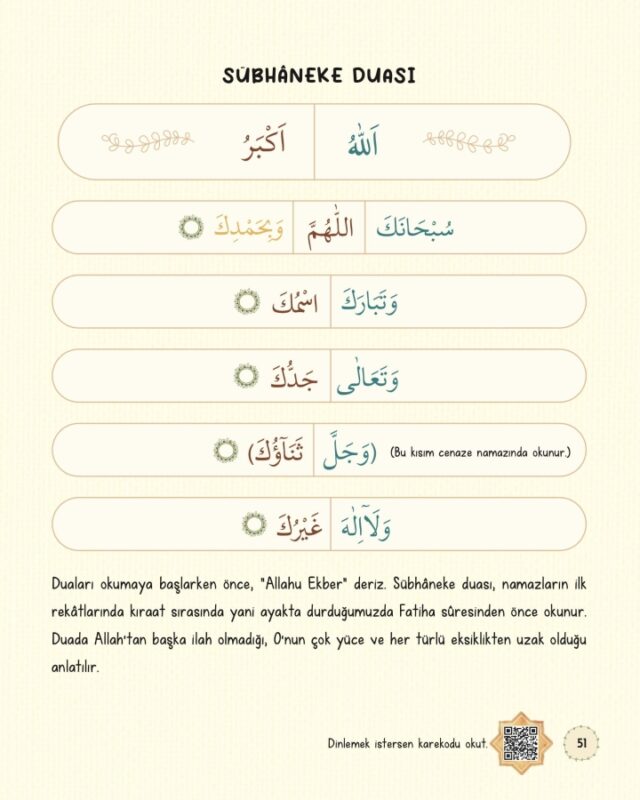 SÜBHÂNEKE DUASI
اَللّٰهُ اَكْبَرُ
سُبْحَانَكَ اللّٰهُمَّ وَبِحَمْدِكَ
وَتَبَارَكَ اسْمُكَ
وَتَعَالٰى جَدُّكَ
(وَجَلَّ ثَنَآؤُكَ) (Bu kısım cenaze namazında okunur.)
وَلَآ اِلٰهَ غَيْرُكَ
Duaları okumaya başlarken önce, "Allahu Ekber" deriz. Sübhâneke duası, namazların ilk
rekâtlarında kıraat sırasında yani ayakta durduğumuzda Fatiha sûresinden önce okunur.
Duada Allah'tan başka ilah olmadığı, O'nun çok yüce ve her türlü eksiklikten uzak olduğu
anlatılır.
Dinlemek istersen karekodu okut.
51